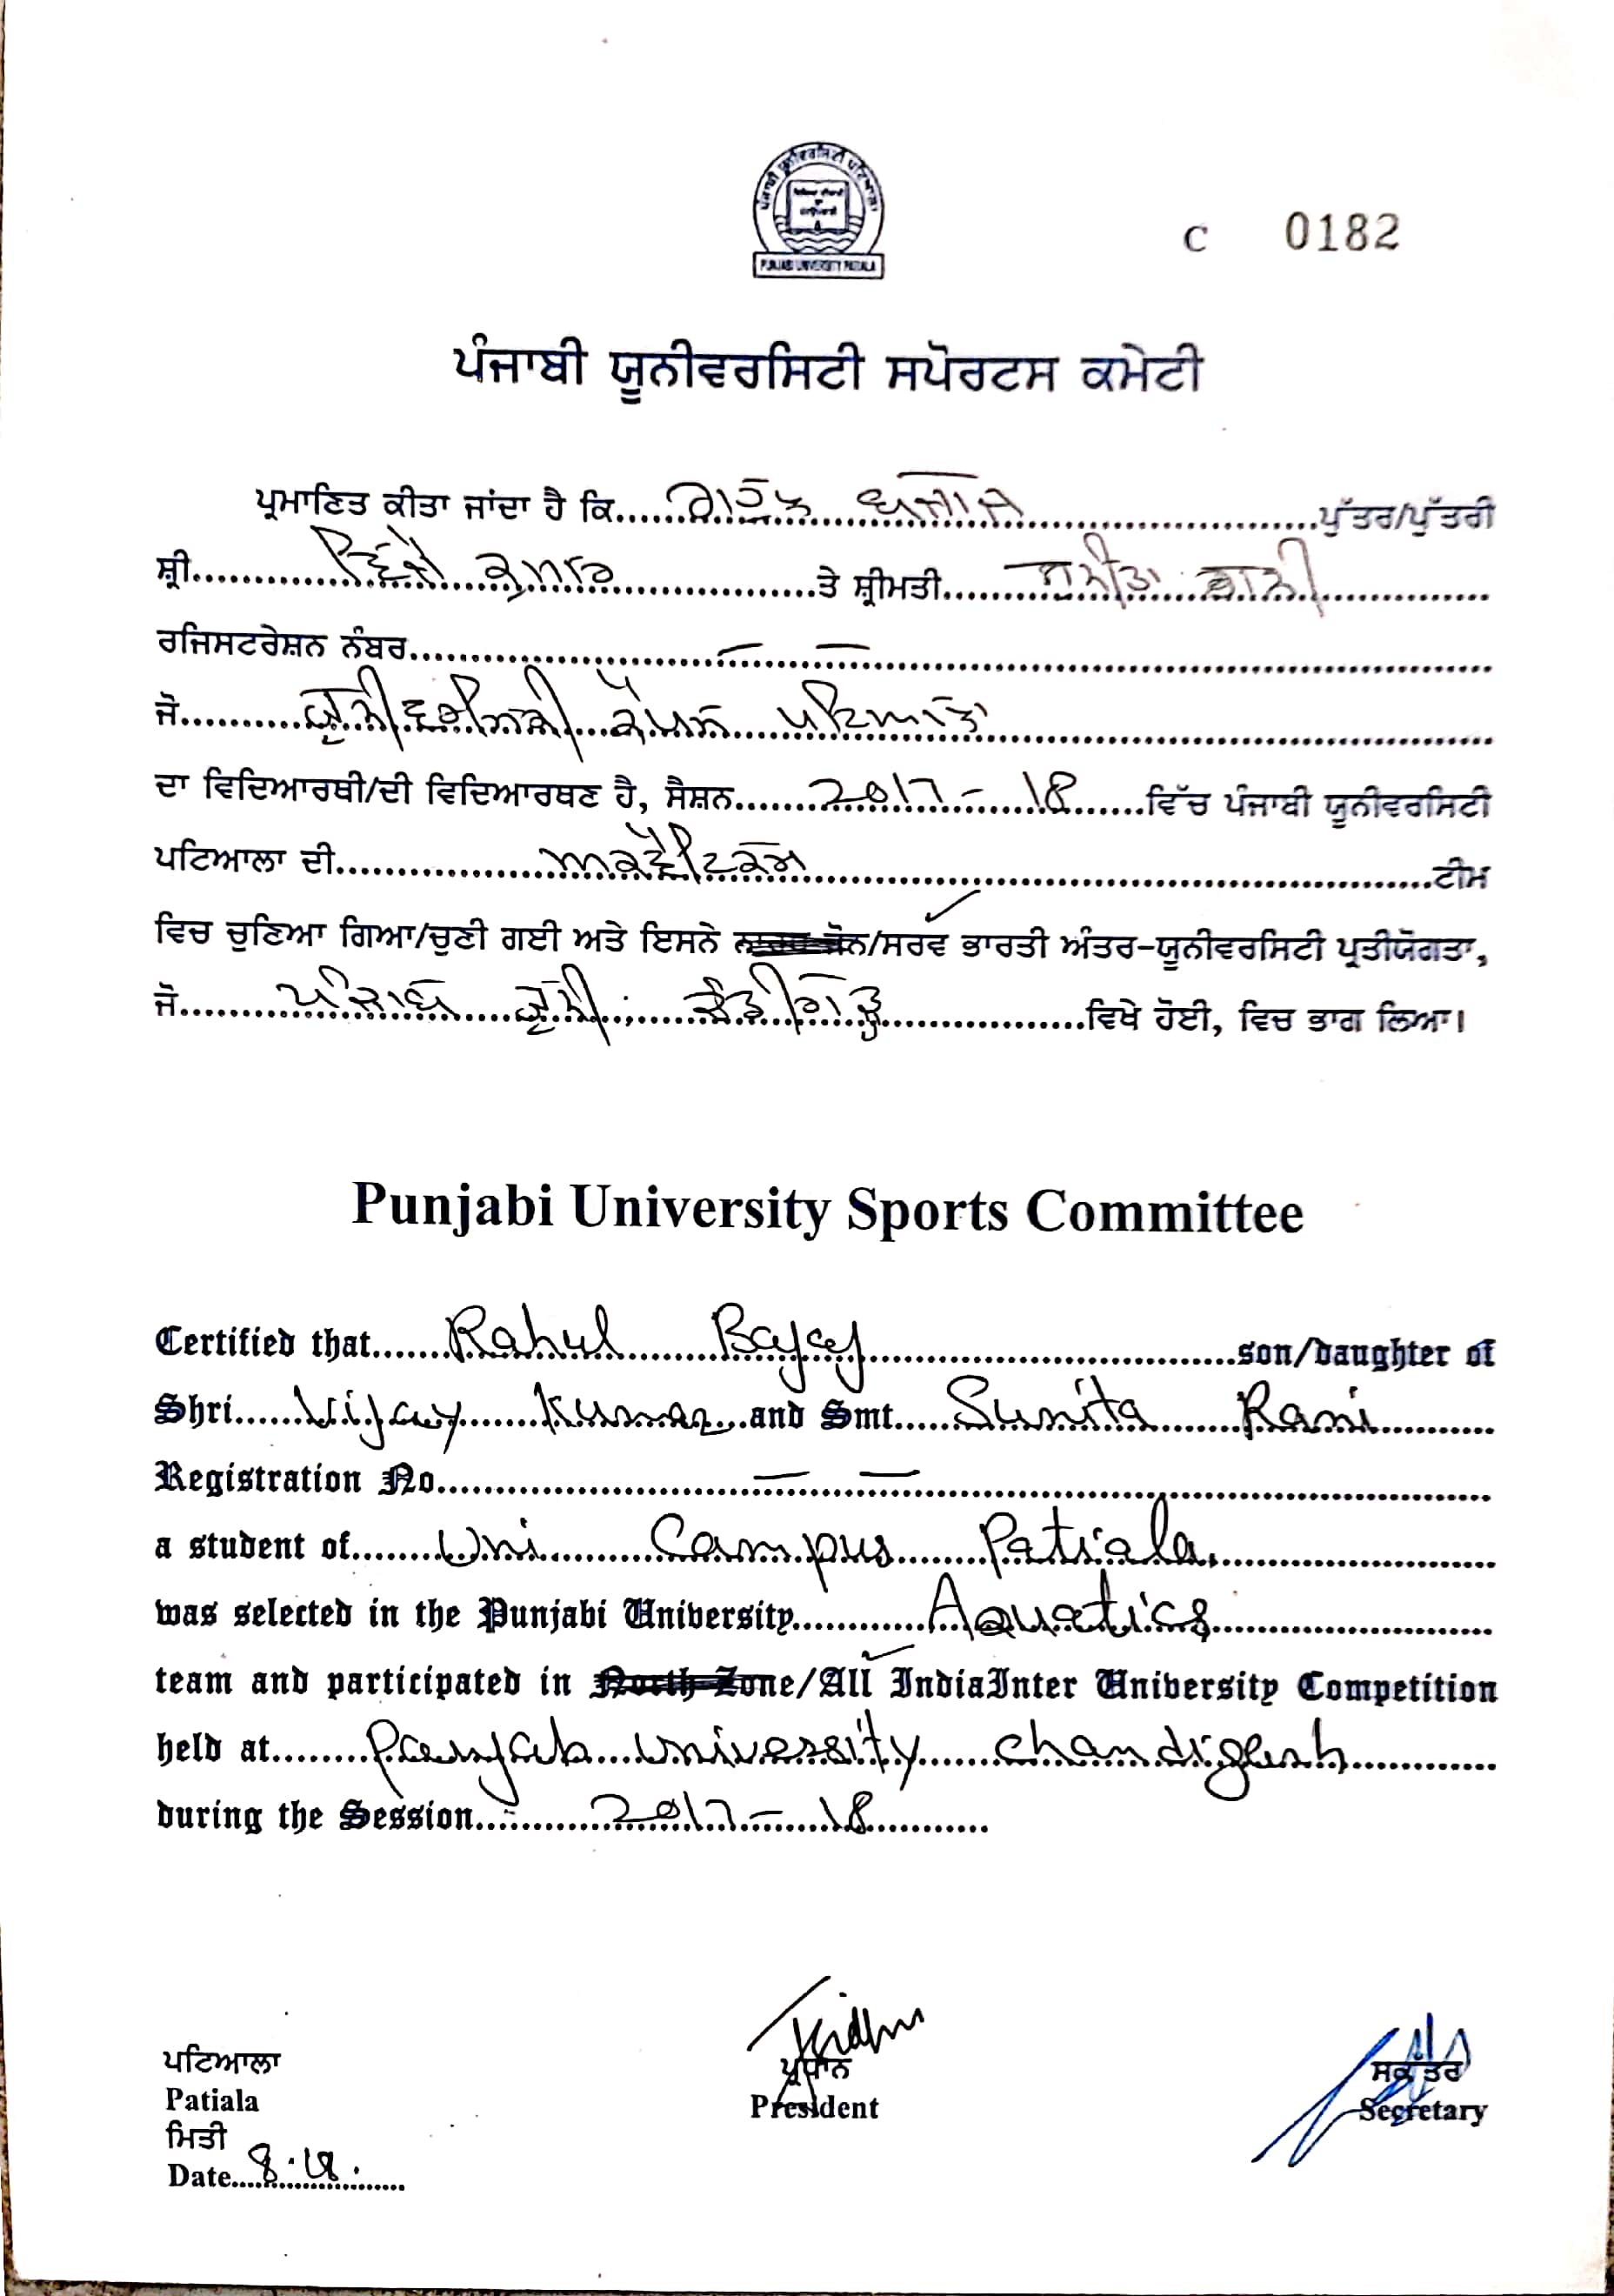 ਪੰਜਾਬੀ ਯੂਨੀਵਰਸਿਟੀ ਪਟਿਆਲਾ
PUNJABI UNIVERSITY PATIALA
C 0182
ਪੰਜਾਬੀ ਯੂਨੀਵਰਸਿਟੀ ਸਪੋਰਟਸ ਕਮੇਟੀ
ਪ੍ਰਮਾਣਿਤ ਕੀਤਾ ਜਾਂਦਾ ਹੈ ਕਿ ਰਾਹੁਲ ਬਜਾਜ ਪੁੱਤਰ/ਪੁੱਤਰੀ
ਸ਼੍ਰੀ ਵਿਜੇ ਕੁਮਾਰ ਤੇ ਸ਼੍ਰੀਮਤੀ ਸੁਨੀਤਾ ਰਾਨੀ
ਰਜਿਸਟਰੇਸ਼ਨ ਨੰਬਰ — —
ਜੋ ਯੂਨੀਵਰਸਿਟੀ ਕੈਂਪਸ ਪਟਿਆਲਾ
ਦਾ ਵਿਦਿਆਰਥੀ/ਦੀ ਵਿਦਿਆਰਥਣ ਹੈ, ਸੈਸ਼ਨ 2017-18 ਵਿੱਚ ਪੰਜਾਬੀ ਯੂਨੀਵਰਸਿਟੀ
ਪਟਿਆਲਾ ਦੀ ਅਕੈਟਿਕਸ ਟੀਮ
ਵਿਚ ਚੁਣਿਆ ਗਿਆ/ਚੁਣੀ ਗਈ ਅਤੇ ਇਸਨੇ ਨਾਰਥ ਜ਼ੋਨ/ਸਰਵ ਭਾਰਤੀ ਅੰਤਰ-ਯੂਨੀਵਰਸਿਟੀ ਪ੍ਰਤੀਯੋਗਤਾ,
ਜੋ ਪੰਜਾਬ ਯੂਨੀ; ਚੰਡੀਗੜ੍ਹ ਵਿਖੇ ਹੋਈ, ਵਿਚ ਭਾਗ ਲਿਆ।
Punjabi University Sports Committee
Certified that Rahul Bajaj son/daughter of
Shri Vijay Kumar and Smt. Sunita Rani
Registration No. — —
a student of Uni Campus Patiala
was selected in the Punjabi University Aquatics
team and participated in North Zone/All IndiaInter University Competition
held at Panjab University Chandigarh
during the Session 2017-18
ਪਟਿਆਲਾ
Patiala
ਮਿਤੀ
Date
ਪ੍ਰਧਾਨ
President
ਸਕੱਤਰ
Secretary